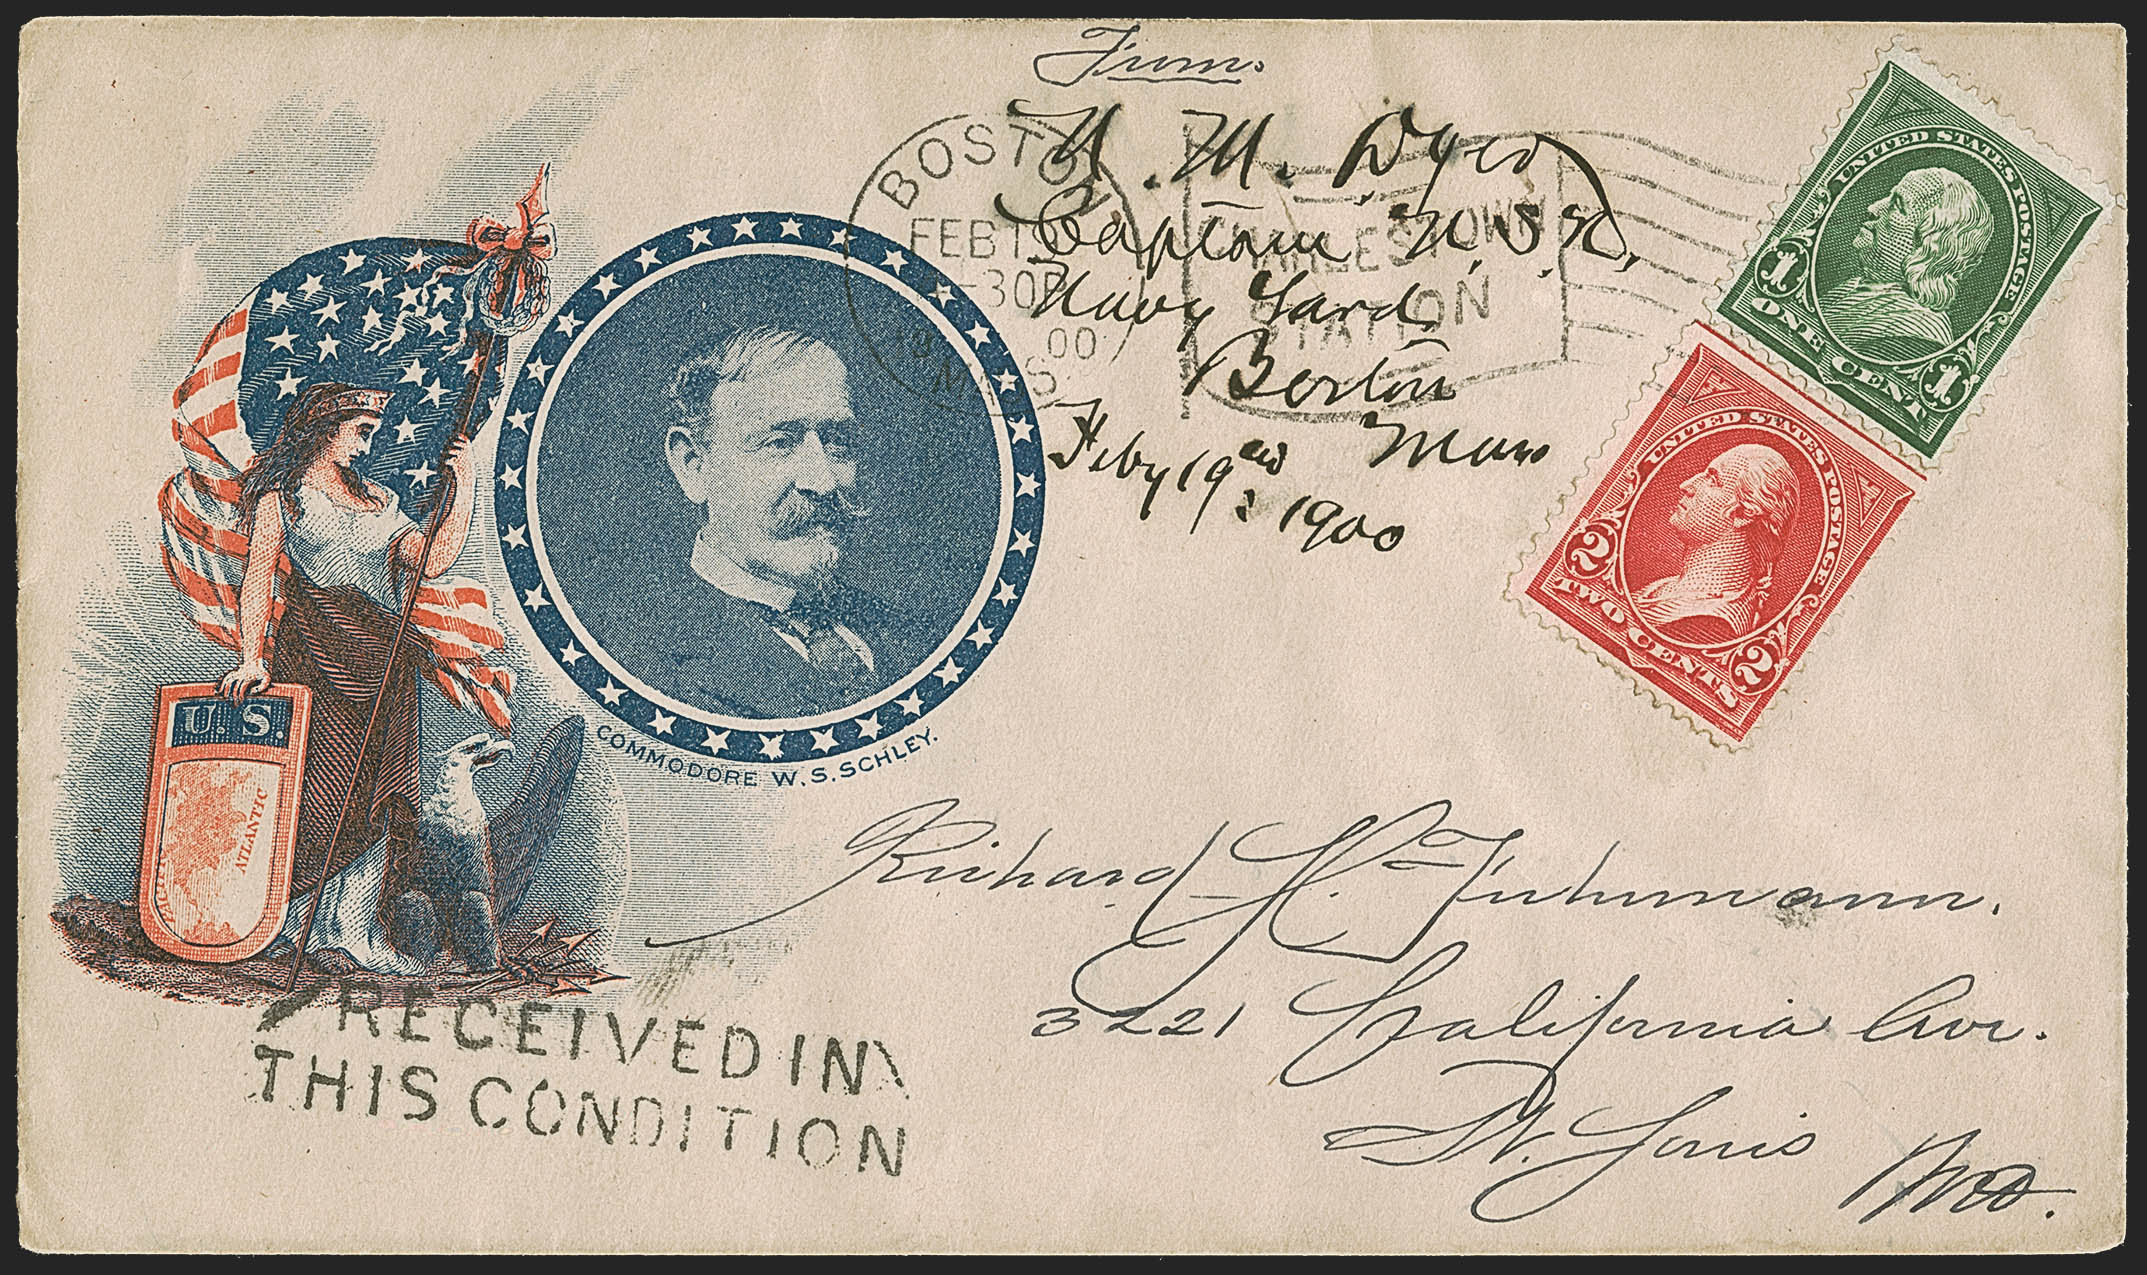 From.
N. M. Dyer
Captain U.S.N.,
Navy Yard
Boston
Mass
Feby 19th: 1900
BOSTON
FEB 19
-30P
00
MASS.
CHARLESTOWN
STATION
UNITED STATES POSTAGE
1 1
ONE CENT
UNITED STATES POSTAGE
2 2
TWO CENTS
COMMODORE W. S. SCHLEY.
U. S.
ATLANTIC
Richard H. Fuhrmann.
3221 California Ave.
St. Louis
Mo.
RECEIVED IN
THIS CONDITION